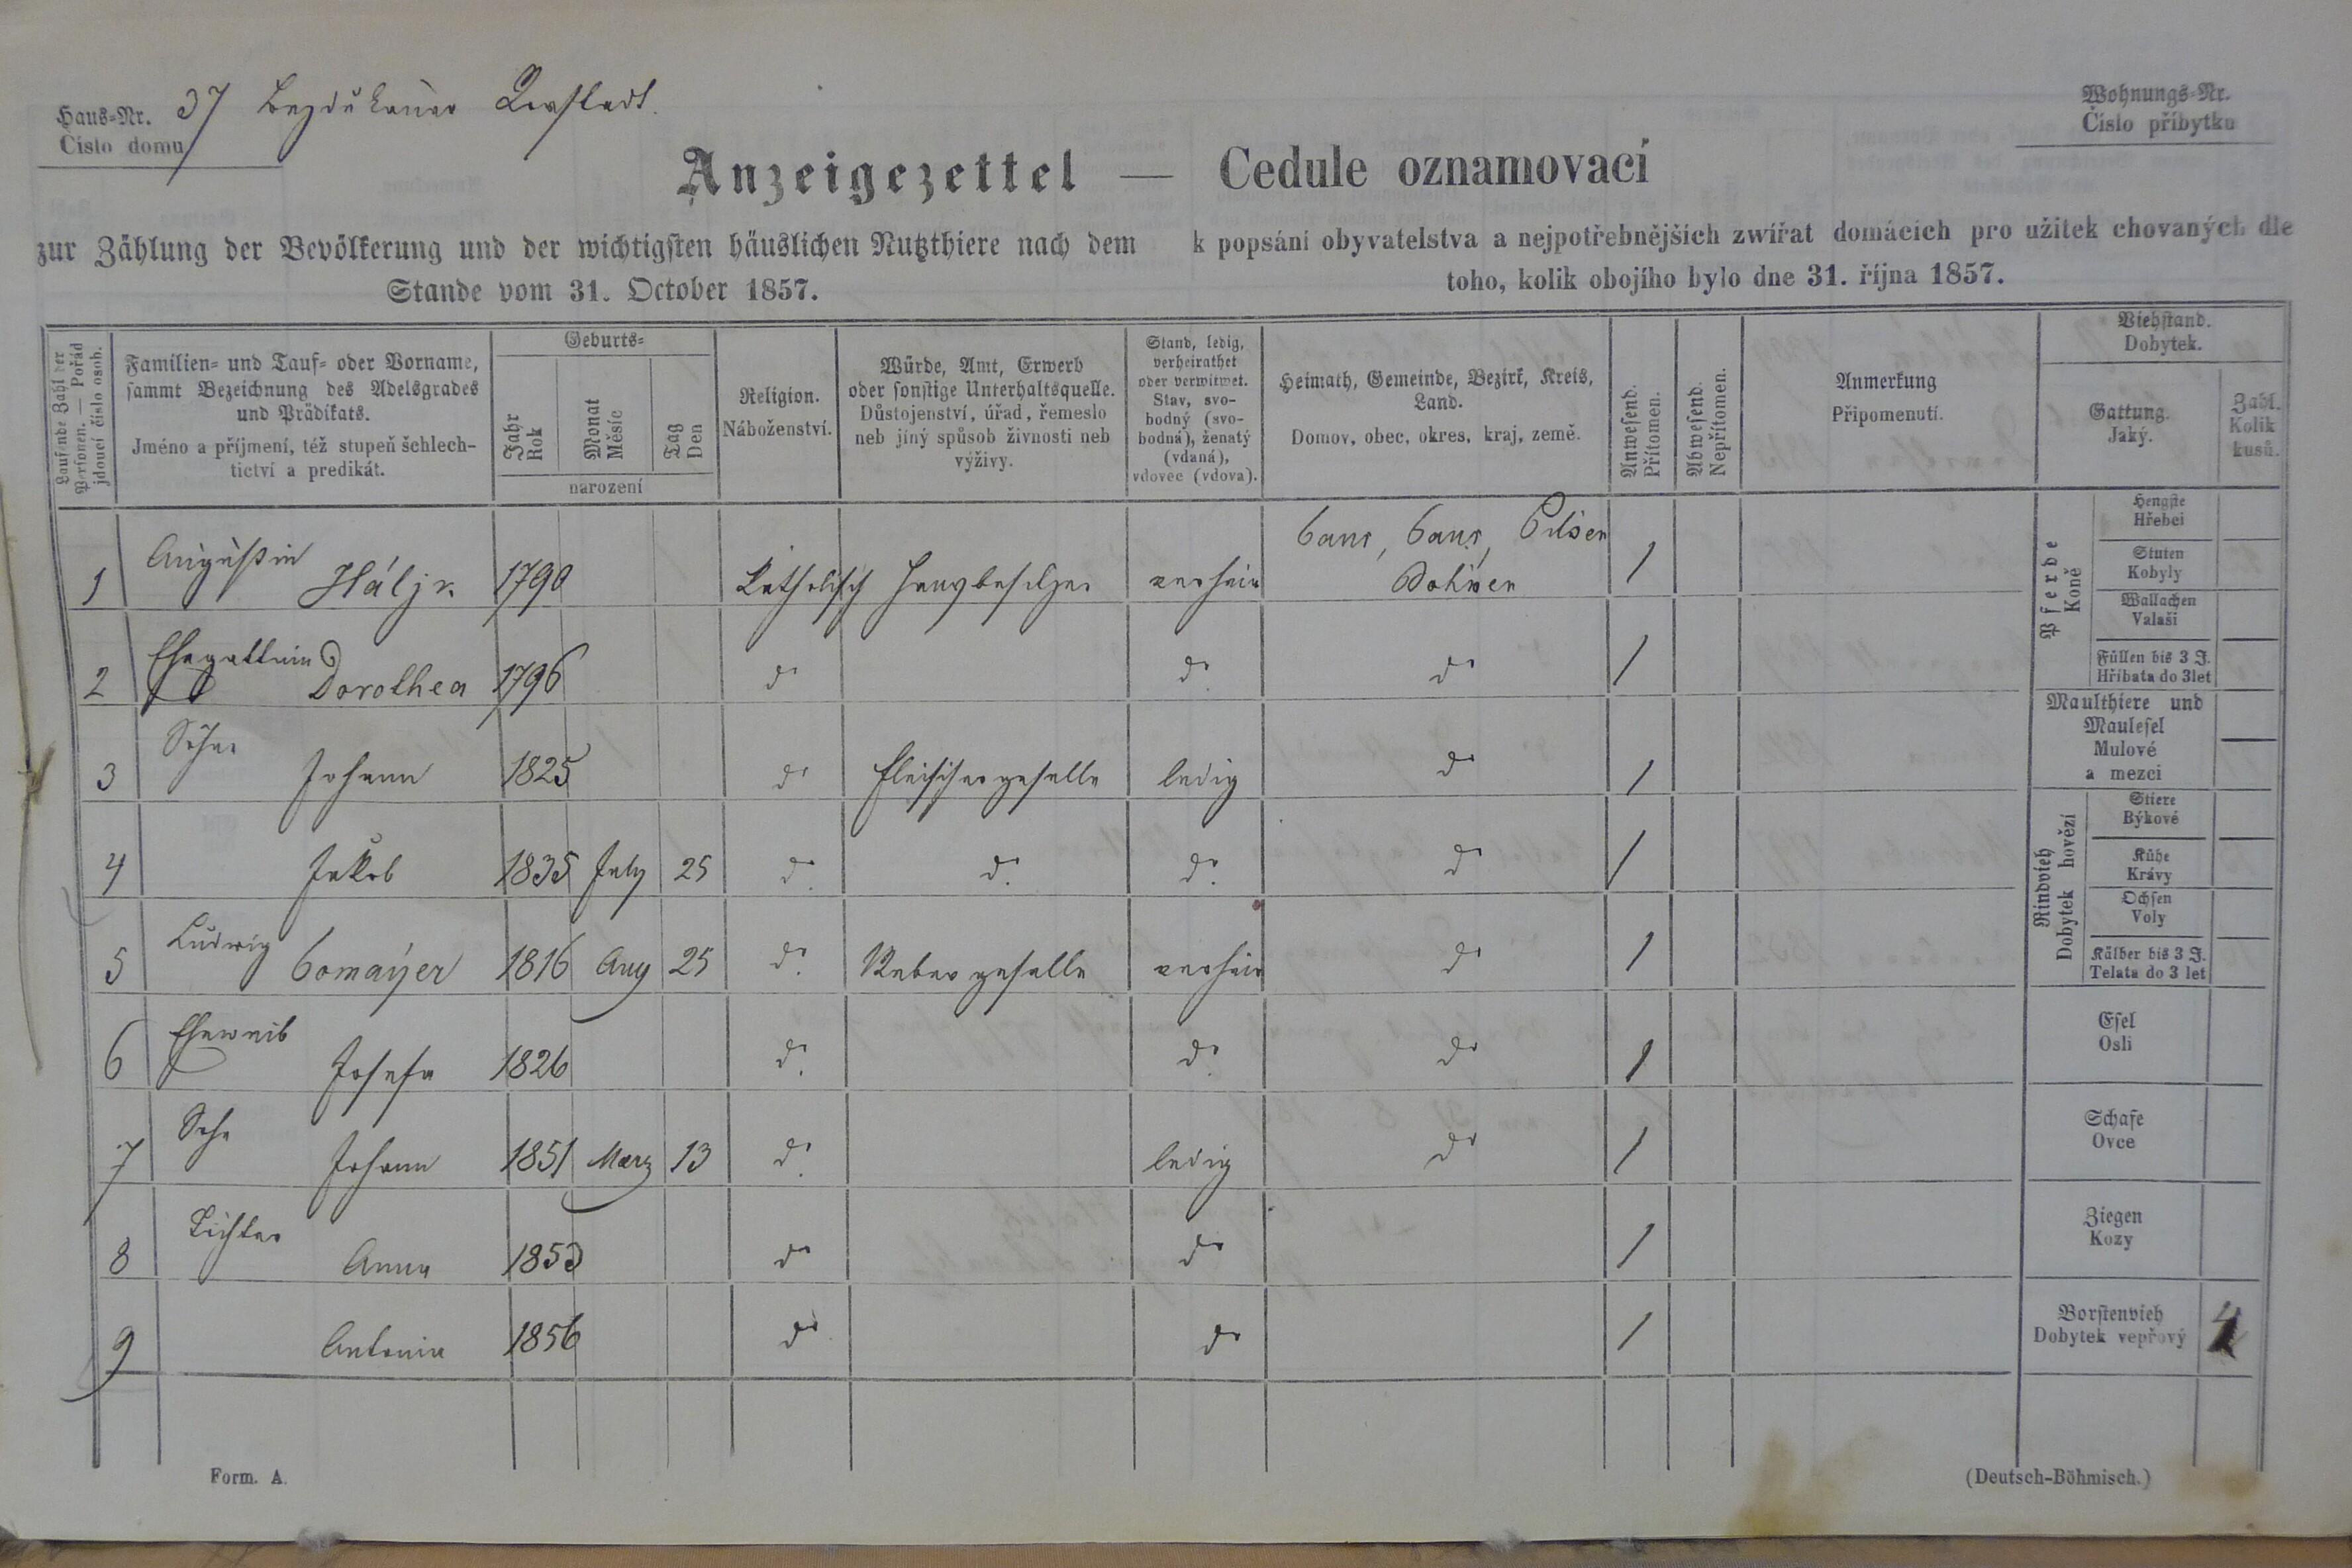 Haus-Nr. 37
Číslo domu
Vorstadt.
Wohnungs-Nr.
Číslo příbytku
Anzeigezettel — Cedule oznamovací
zur Zählung der Bevölkerung und der wichtigsten häuslichen Nutzthiere nach dem
Stande vom 31. October 1857.
k popsání obyvatelstva a nejpotřebnějších zwířat domácích pro užitek chovaných dle
toho, kolik obojího bylo dne 31. října 1857.
Laufende Zahl der
Personen. — Pořád
jdoucí číslo osob.
Familien- und Tauf- oder Vorname,
sammt Bezeichnung des Adelsgrades
und Prädikats.
Jméno a příjmení, též stupeň šchlech-
tictví a predikát.
Geburts-
Jahr
Rok
Monat
Měsíc
Tag
Den
narození
Religion.
Náboženství.
Würde, Amt, Erwerb
oder sonstige Unterhaltsquelle.
Důstojenství, úřad, řemeslo
neb jíný spůsob živnosti neb
výživy.
Stand, ledig,
verheirathet
oder verwitwet.
Stav, svo-
bodný (svo-
bodná), ženatý
(vdaná),
vdovec (vdova).
Heimath, Gemeinde, Bezirk, Kreis,
Land.
Domov, obec, okres, kraj, země.
Anwesend.
Přítomen.
Abwesend.
Nepřítomen.
Anmerkung
Připomenutí.
Viehstand.
Dobytek.
Gattung.
Jaký.
Zahl.
Kolik
kusů.
1 Augustin 1790 Katholisch Hausbesitzer verheir Pilsen 1
2 Ehegattin Dorothea 1796 do do do 1
3 Söhne Johann 1825 do Fleischergeselle ledig do 1
4 Jakob 1835 July 25 do do do do 1
5 Ludwig 1816 Aug 25 do Webergeselle verheir do 1
6 Eheweib Josefa 1826 do do do 1
7 Sohn Johann 1851 Marz 13 do ledig do 1
8 Töchter Anna 1853 do do 1
9 Antonia 1856 do do 1
Pferde
Koně
Hengste
Hřebci
Stuten
Kobyly
Wallachen
Valaši
Füllen bis 3 J.
Hříbata do 3let
Maulthiere und
Maulesel
Mulové
a mezci
Rindvieh
Dobytek hovězí
Stiere
Býkové
Kühe
Krávy
Ochsen
Voly
Kälber bis 3 J.
Telata do 3 let
Esel
Osli
Schafe
Ovce
Ziegen
Kozy
Borstenvieh
Dobytek vepřový
Form. A.
(Deutsch-Böhmisch.)